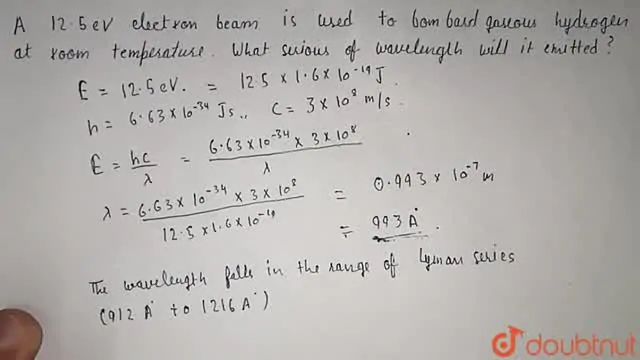 A 12.5 eV electron beam is used to bombard gaseous hydrogen
at room temperature. What serious of wavelength will it emitted?
E = 12.5 eV. = 12.5 × 1.6 × 10⁻¹⁹ J.
h = 6.63 × 10⁻³⁴ Js., C = 3 × 10⁸ m/s.
E = hc/λ = 6.63 × 10⁻³⁴ × 3 × 10⁸ / λ
λ = 6.63 × 10⁻³⁴ × 3 × 10⁸ / 12.5 × 1.6 × 10⁻¹⁹ = 0.993 × 10⁻⁷ m
= 993 A°.
The wavelength falls in the range of Lyman series
(912 A° to 1216 A°)
doubtnut